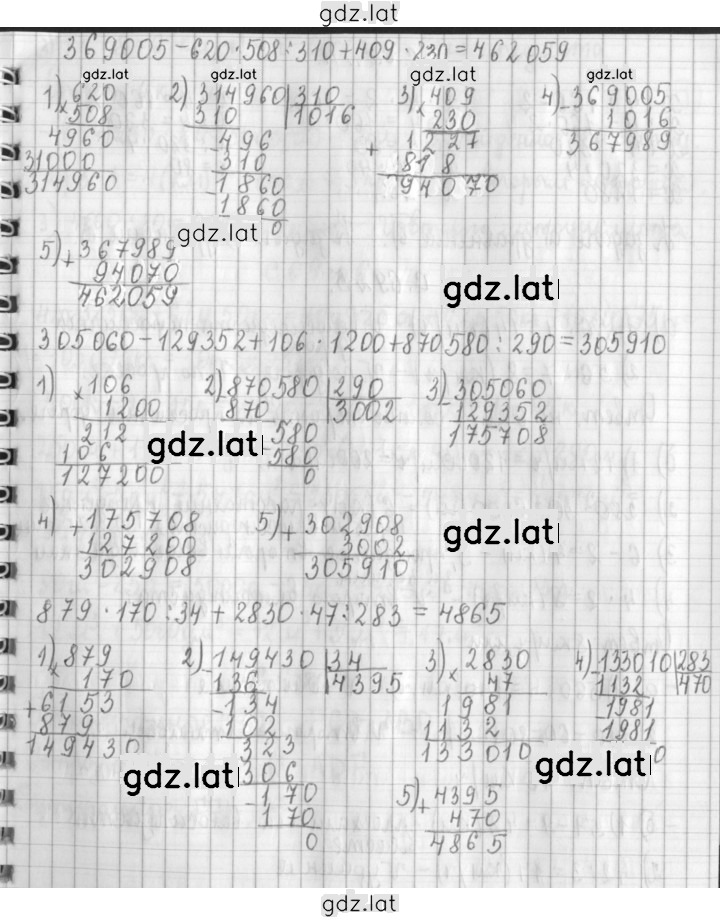 gdz.lat
369005-620·508:310+409·230=462059
gdz.lat gdz.lat gdz.lat gdz.lat
1) 620 2) 314960 310 3) 409 4) 369005
× 508 310 1016 × 230 - 1016
4960 496 1227 367989
31000 310 + 818
314960 -1860 94070
1860
0
gdz.lat
5) + 367989
94070
462059
gdz.lat
305060-129352+106·1200+870580:290=305910
1) × 106 2) 870580 290 3) 305060
1200 870 3002 - 129352
212 580 175708
106 -580
127200 0
gdz.lat
4) + 175708 5) + 302908
127200 3002
302908 305910
gdz.lat
879·170:34+2830·47:283=4865
1) 879 2) 149430 34 3) 2830 4) 133010 283
× 170 136 4395 × 47 1132 470
+ 6153 -134 1981 1981
879 102 1132 1981
149430 323 133010 0
306
-170
170
0
gdz.lat gdz.lat
5) + 4395
470
4865
gdz.lat